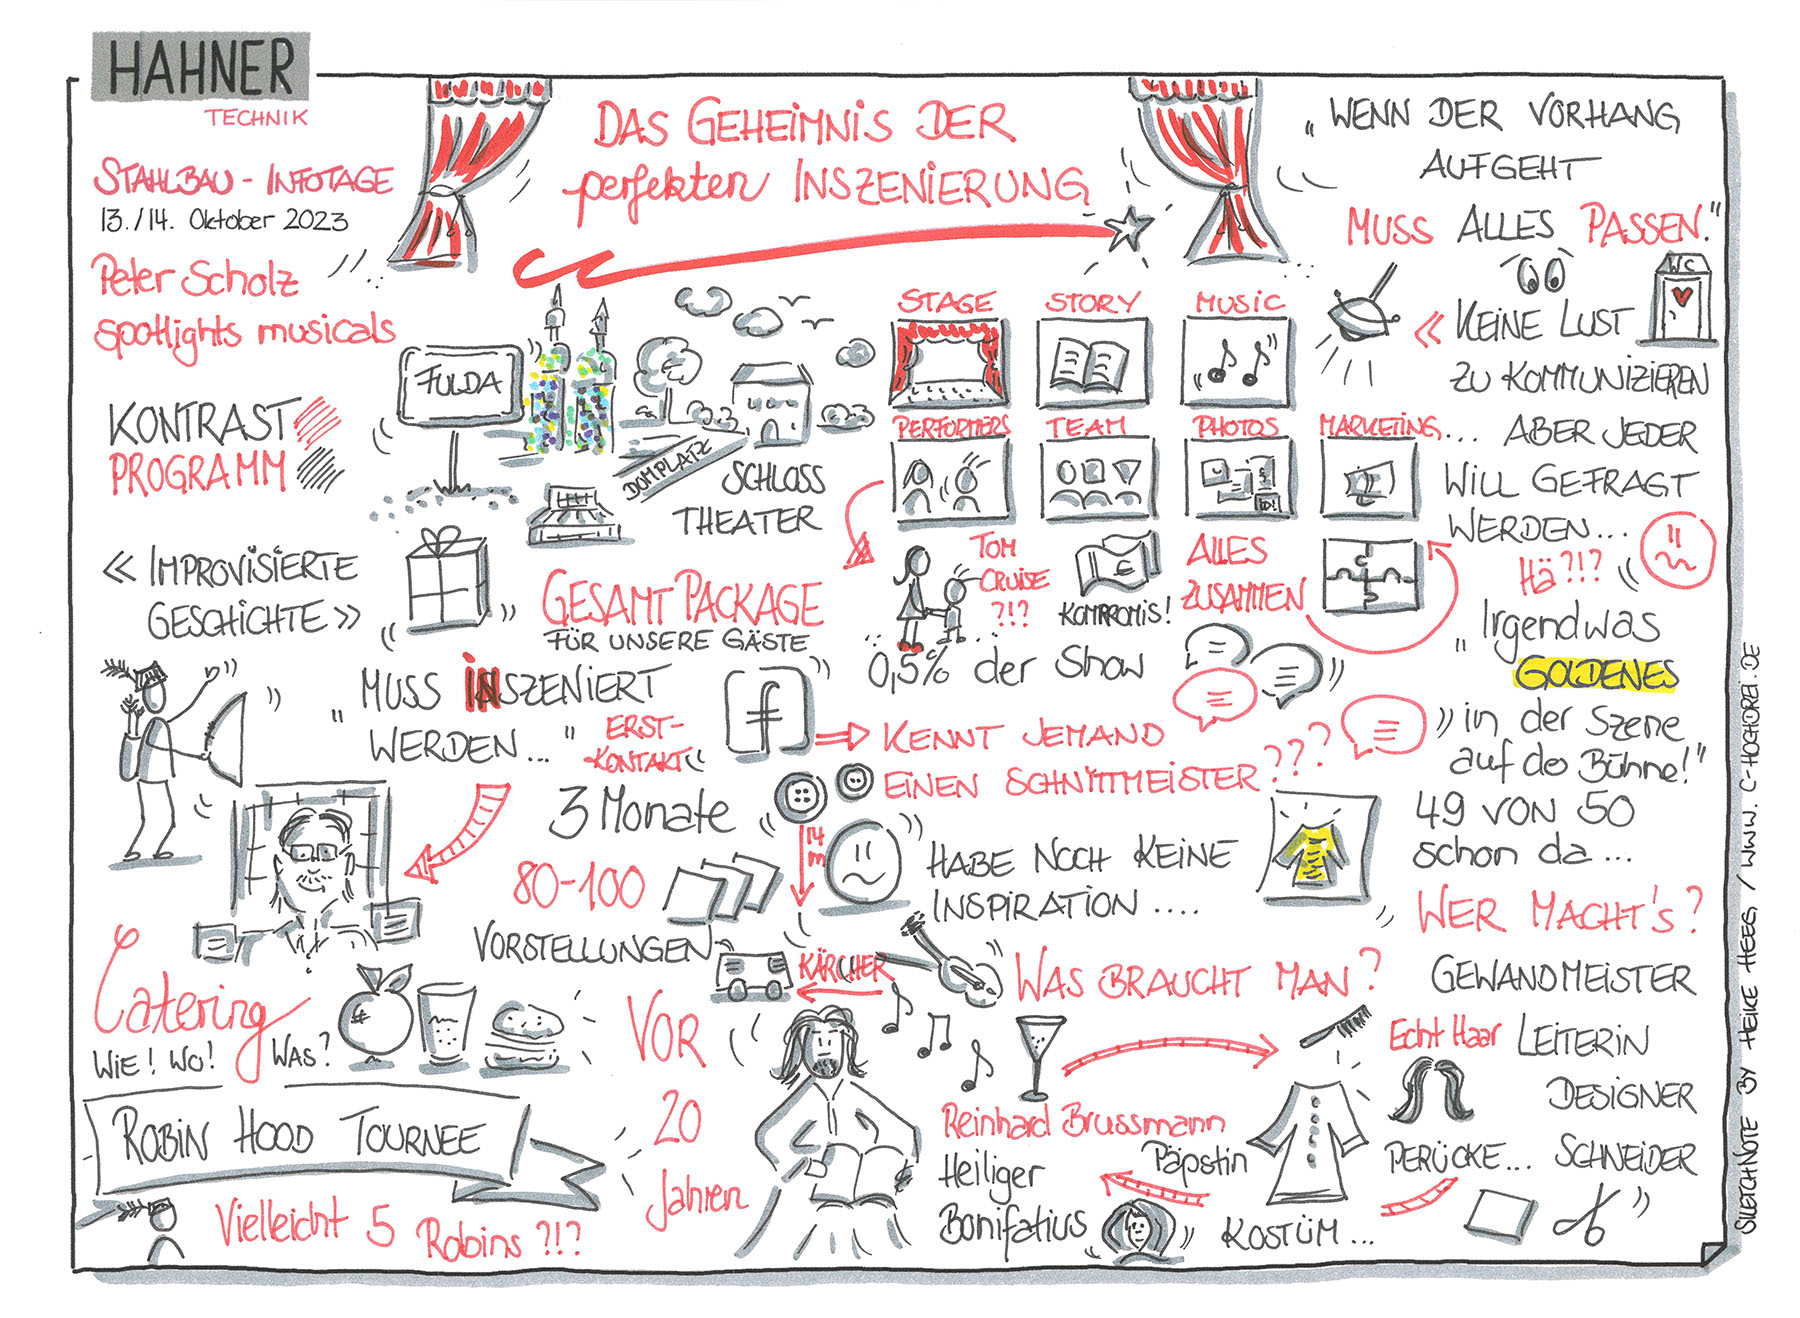 HAHNER
TECHNIK
STAHLBAU - INFOTAGE
13./14. Oktober 2023
Peter Scholz
spotlights musicals
DAS GEHEIMNIS DER
perfekten INSZENIERUNG
„WENN DER VORHANG
AUFGEHT
MUSS ALLES PASSEN."
WC
« KEINE LUST
ZU KOMMUNIZIEREN
... ABER JEDER
WILL GEFRAGT
WERDEN...
HÄ?!?
KONTRAST
PROGRAMM
« IMPROVISIERTE
GESCHICHTE »
FULDA
DOMPLATZ
SCHLOSS
THEATER
GESAMT PACKAGE
FÜR UNSERE GÄSTE
STAGE
STORY
MUSIC
PERFORMERS
TEAM
PHOTOS
MARKETING
TOM
CRUISE
?!?
KOMPROMIS!
ALLES
ZUSAMMEN
0,5% der Show
„Irgendwas
GOLDENES
in der Szene
auf do Bühne!"
49 VON 50
schon da...
WER MACHT's?
GEWANDMEISTER
LEITERIN
DESIGNER
SCHNEIDER
„MUSS INSZENIERT
WERDEN..."
ERST-
KONTAKT
f
KENNT JEMAND
EINEN SCHNITTMEISTER ???
3 Monate
80-100
VORSTELLUNGEN
14 m
HABE NOCH KEINE
INSPIRATION ....
KÄRCHER
WAS BRAUCHT MAN?
Catering
WIE! WO! WAS?
ROBIN HOOD TOURNEE
Vielleicht 5 Robins ?!?
VOR
20
Jahren
Reinhard Brussmann
Heiliger
Bonifatius
Päpstin
Echt Haar
PERÜCKE...
KOSTÜM...
SKETCHNOTE BY HEIKE HEES / WWW. C-HOCHDREI.DE